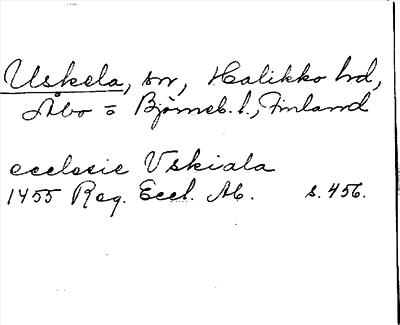 Uskela, sn, Halikko hd,
Åbo = Björneb. l., Finland
ecclesie Vskiala
1455 Reg. Eccl. Ab. s. 456.